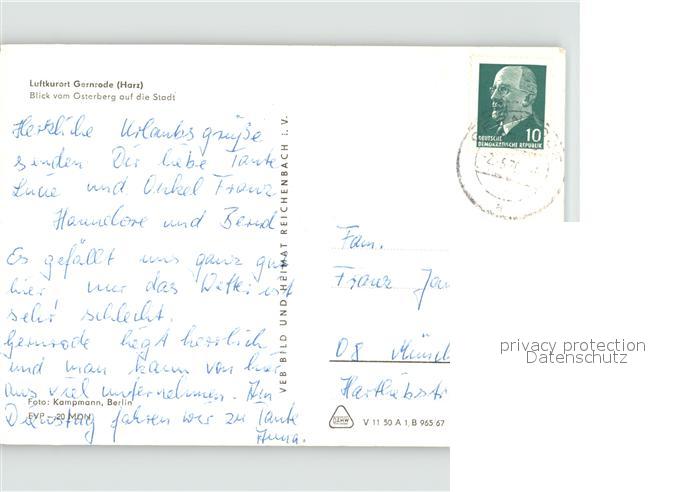 Luftkurort Gernrode (Harz)
Blick vom Osterberg auf die Stadt
Herzliche Urlaubsgrüße
senden Dir liebe Tante
Luzie und Onkel Franz
Hannelore und Bernd
Es gefällt uns ganz gut
hier, nur das Wetter ist
sehr schlecht.
Gernrode liegt herrlich
und man kann von hier
aus viel unternehmen. Am
Dienstag fahren wir zu Tante
Anna.
Foto: Kampmann, Berlin
EVP –.20 MDN
VEB BILD UND HEIMAT REICHENBACH i. V.
DEUTSCHE
DEMOKRATISCHE REPUBLIK
10
Fam.
Franz
08
V 11 50 A 1, B 965/67
privacy protection
Datenschutz